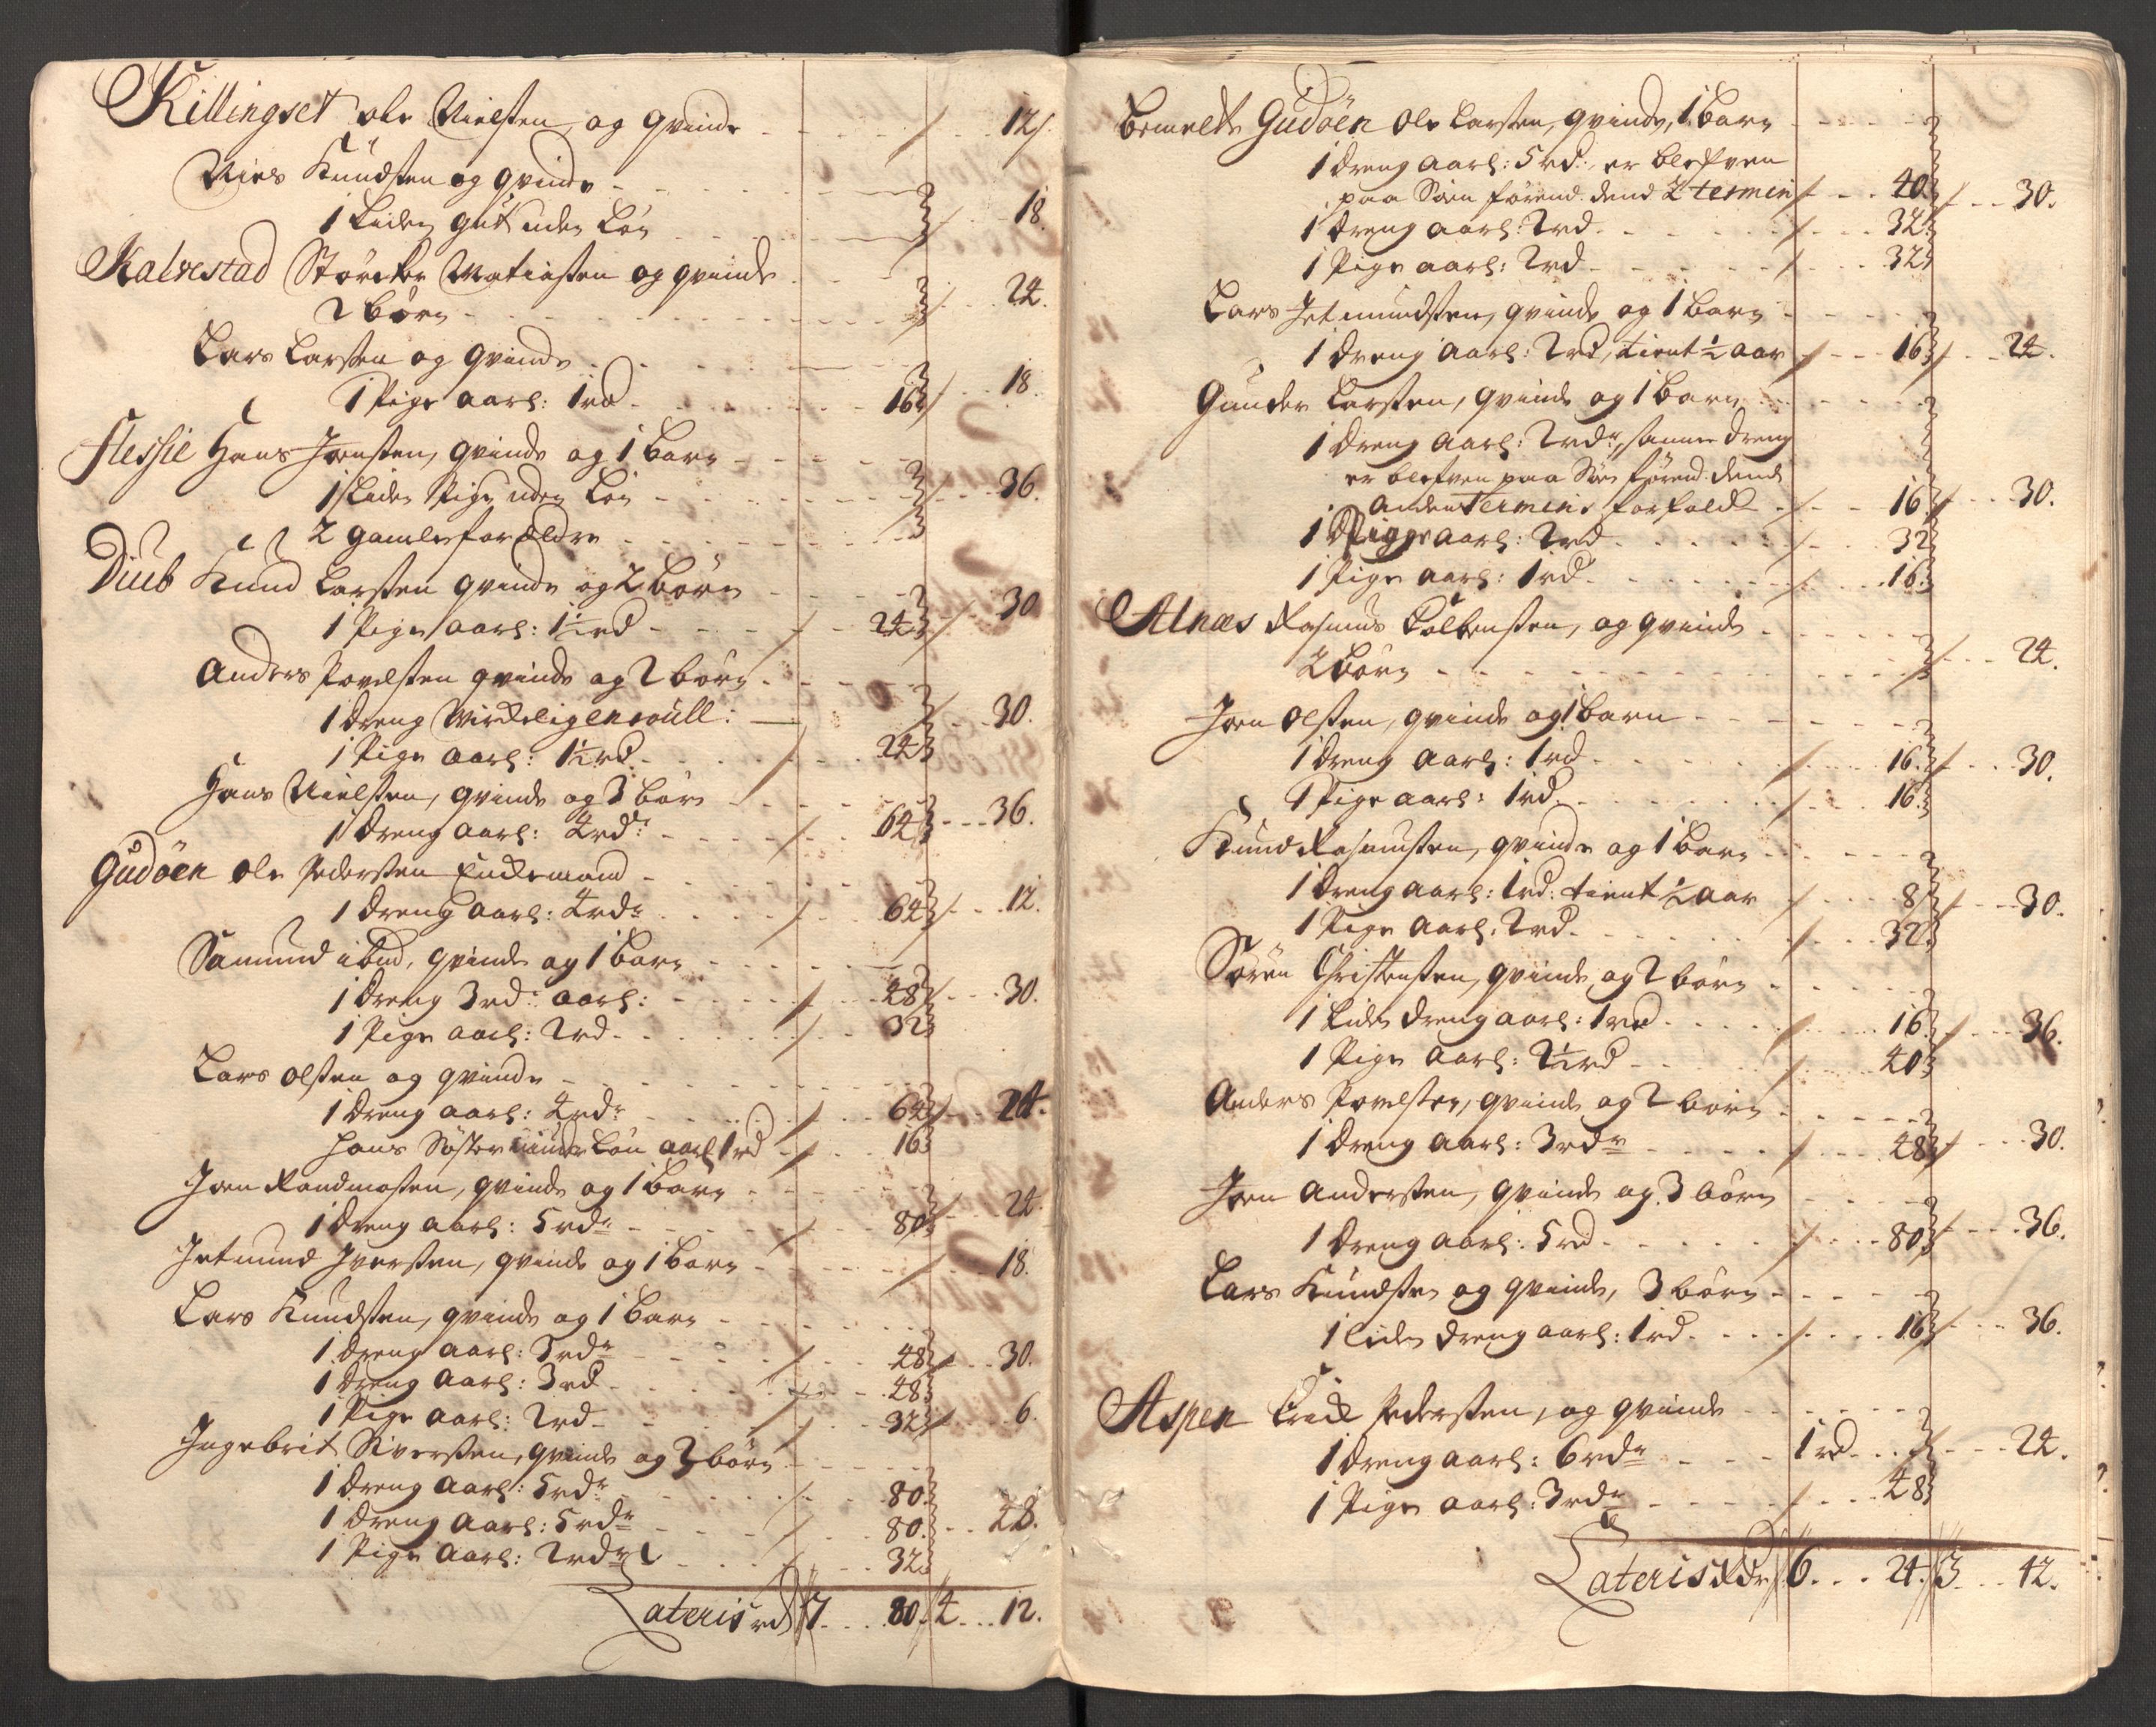 Killingset Ole Nielsen, og qvinde - - - / - - 12/.
Niels Knudsen og qvinde - - -
1 Liden gut uden Løn - - - / - - 18.
Kalvestad Störcker Matiasen og qvinde - -
2 börn - - - / - - 24.
Lars Larsen og qvinde - - -
1 Pige aarl: 1 rd - - - 16 / - - 18.
Flessie Hans Jonsen, qvinde og 1 Barn - - -
1 Liden Pige uden Løn - - - / - - 36.
2 gamle forældre - - -
Diub Knud Larsen qvinde og 2 börn - - -
1 Pige aarl: 1½ rd - - - / - 24 / - 30
Anders Povelsen qvinde og 2 börn - - -
1 dreng Wirckelig enroull: — / - - 30.
1 Pige aarl: 1½ rd. - - - / - - 24
Hans Nielsen, qvinde og 3 börn - - -
1 dreng aarl: 4 rdr: - - - / - - 64 - - - 36.
Gudöen Ole Pedersen Enckemand - - -
1 dreng aarl: 4 rdr - - - / - - 64 / - - 12.
Samund ibid, qvinde og 1 Barn - - -
1 dreng 3 rdr aarl: - - - / - - 48 / - - - 30.
1 Pige aarl: 2 rd - - - / - - 32
Lars Olsen og qvinde - - -
1 dreng aarl: 4 rdr - - - / - - 64 / - - 24.
Hans Söster under Løn aarl 1 rd - / - - 16
Joen Randmosen, qvinde og 1 Barn - - -
1 dreng aarl: 5 rdr - - - / - - 80 / - - 24.
Jetmund Iversen, qvinde og 1 barn - - - / - - 18.
Lars Knudsen, qvinde og 1 Barn - - -
1 dreng aarl: 3 rdr - - - / - - 48 / - - 30.
1 dreng aarl: 3 rd - - - / - - 48
1 Pige aarl: 2 rd - - - / - - 32 / - - 6.
Ingebrit Siversen, qvinde og 3 börn - - -
1 dreng aarl: 5 rdr - - - / - - 80.
1 dreng aarl: 5 rdr - - - / - - 80. - - 48.
1 Pige aarl: 2 rdr - - - / - - 32
Lateris rd 17 - - 80. / 4 - - 12.
Bemelte Gudöen Ole Larsen, qvinde, 1 Barn - - -
1 dreng aarl: 5 rd:, er blefven
paa Söen förend dend 2 termin / - - 40 / - - 30.
1 dreng aarl: 2 rd - - - / - - 32
1 Pige aarl: 2 rd - - - / - - 32
Lars Jetmundsen, qvinde og 1 barn - - -
1 dreng aarl: 2 rd, tient ½ aar / - - 16 / - - 24.
Gunder Larsen, qvinde og 1 Barn - - -
1 dreng aarl: 2 rdr, samme dreng
er blefven paa Söen förend dend
anden termins forfald - / - - 16 / - - 30.
1 Pige aarl: 2 rd - - - / - - 32
1 Pige aarl: 1 rd - - - / - - 16
Alnæs Rasmus Colbensen, og qvinde - - -
2 börn - - - / - - 24.
Joen Olsen, qvinde og 1 barn - - -
1 dreng aarl: 1 rd - - - / - - 16. / - - 30.
1 Pige aarl: 1 rd. - - - / - - 16
Knud Rasmusen, qvinde og 1 Barn - - -
1 dreng aarl: 1 rd: tient ½ aar / - - 8 / - - 30.
1 Pige aarl: 2 rd. - - - / - - 32
Sören Christensen, qvinde og 2 börn - - -
1 Liden dreng aarl: 1 rd - - - / - - 16 / - - 36.
1 Pige aarl: 2½ rd - - - / - - 40
Anders Povelsen, qvinde og 2 börn - - -
1 dreng aarl: 3 rdr - - - / - - 48 / - - 30.
Joen Andersen, qvinde og 3 börn - - -
1 dreng aarl: 5 rd - - - / - - 80 / - - 36.
Lars Knudsen og qvinde, 3 börn - - -
1 liden dreng aarl: 1 rd - - - / - - 16 / - - 36.
Aspen Erick Pedersen, og qvinde - - -
1 dreng aarl: 6 rdr - - - 1 rd - - / - - 24.
1 Pige aarl: 3 rdr - - - / - - 48
Lateris Rdr 6 - - 24. / 3 - - 42.